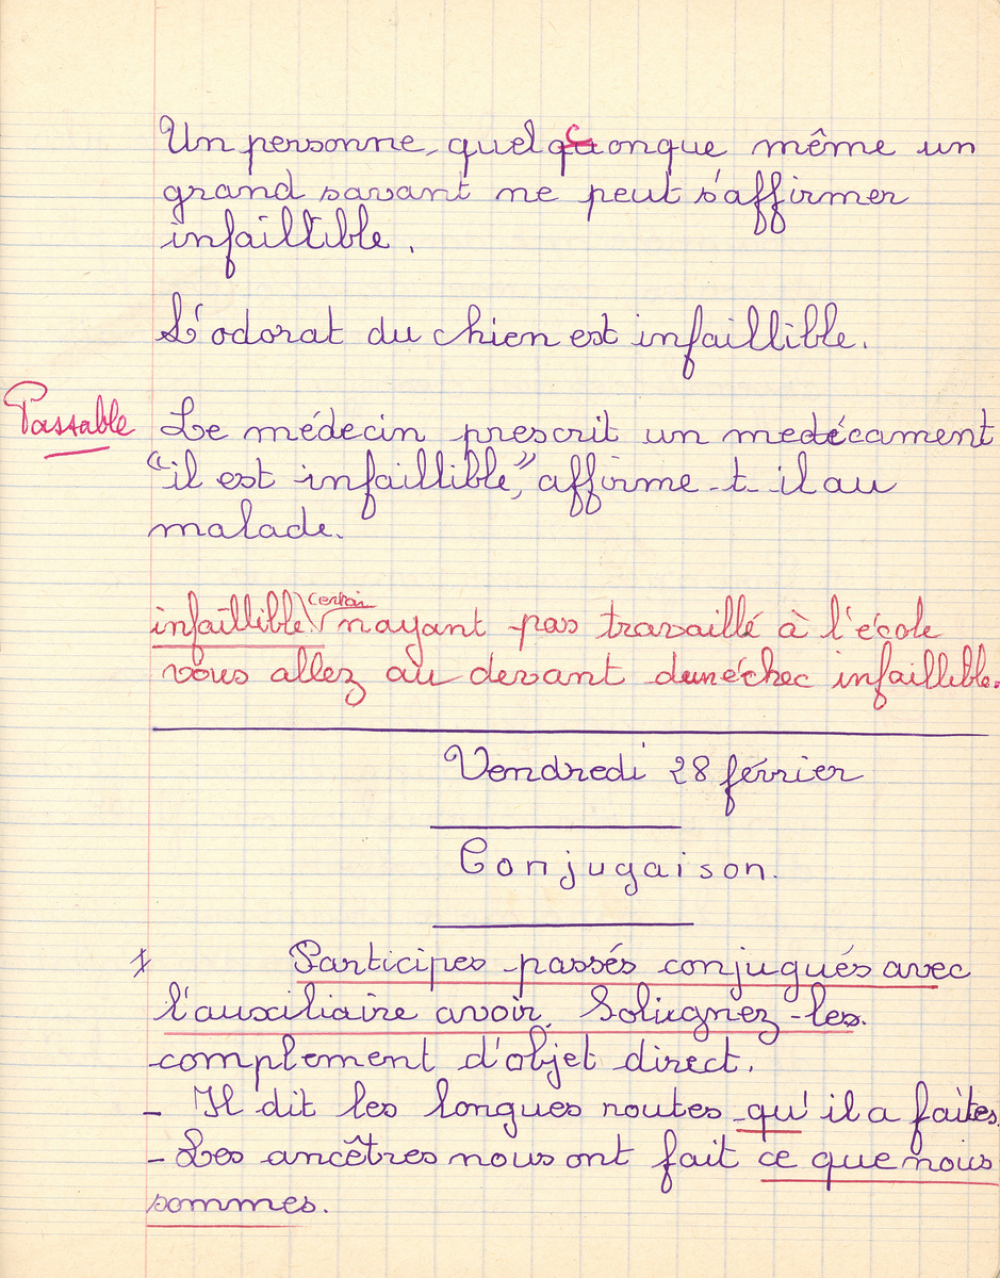 Un personne, quelconque même un
grand savant ne peut s'affirmer
infaillible.
L'odorat du chien est infaillible.
Passable
Le médecin prescrit un medécament
"il est infaillible", affirme-t-il au
malade.
certain
infaillible. nayant pas travaillé à l'école
vous allez au devant dun échec infaillible.
Vendredi 28 février
Conjugaison.
Participes passés conjugués avec
l'auxiliaire avoir. Soliugnez-les.
complement d'objet direct.
- Il dit les longues routes qu'il a faites.
- Les ancêtres nous ont fait ce que nous
sommes.